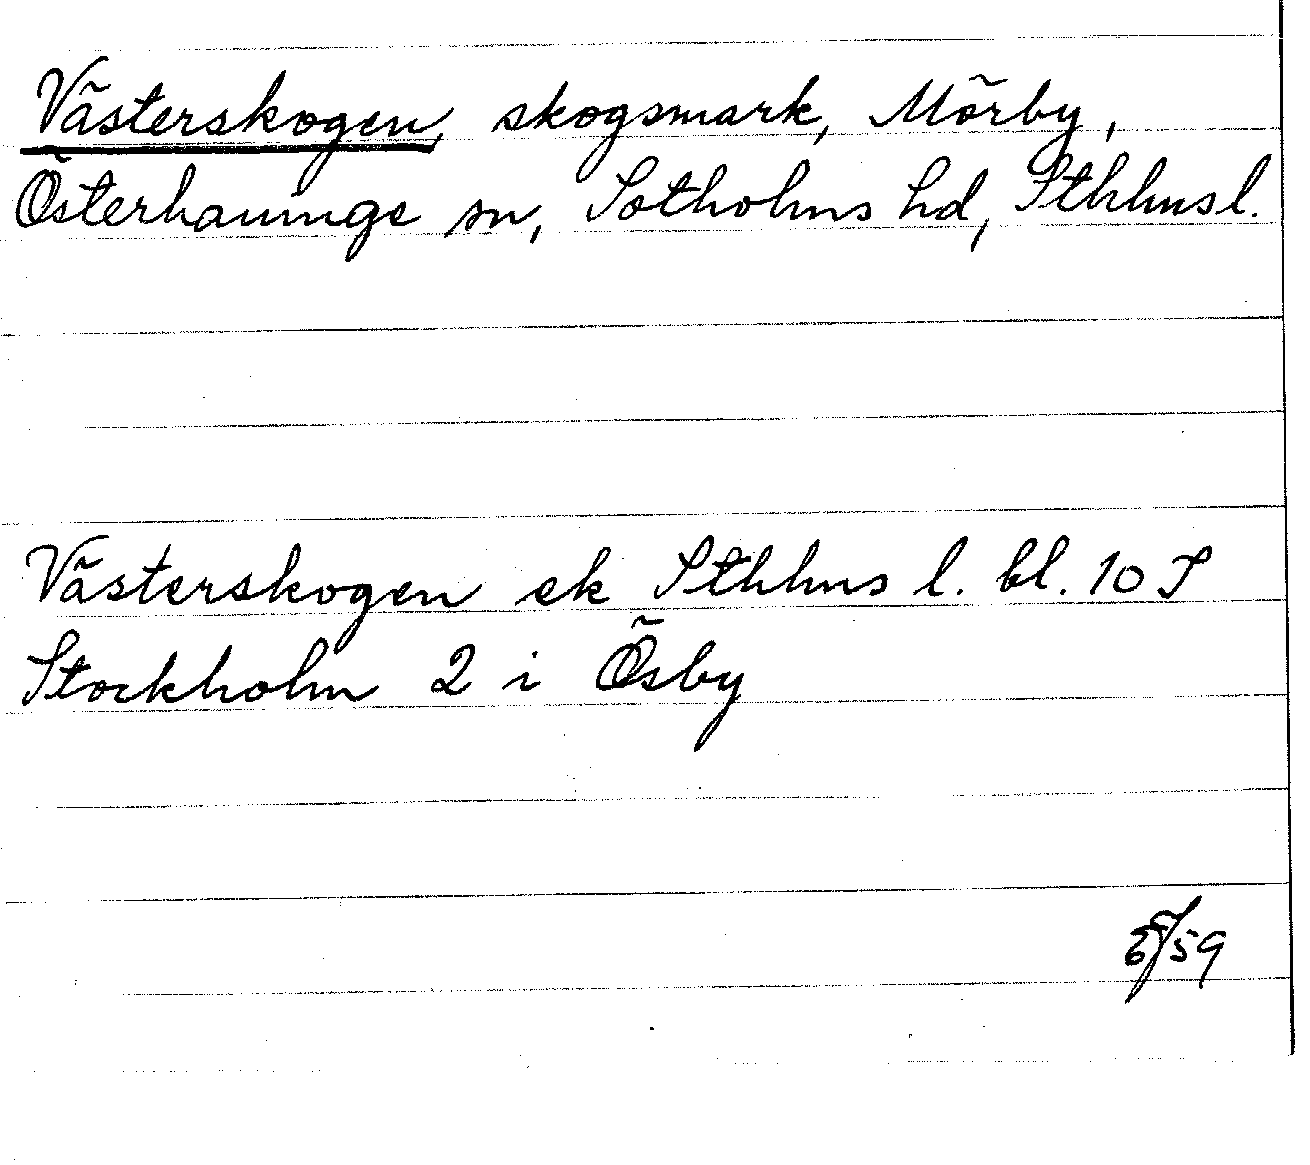 Västerskogen, skogsmark, Mörby,
Österhaninge sn, Sotholms hd, Sthlmsl.
Västerskogen ek Sthlms l. bl. 10 I
Stockholm 2 i Ösby